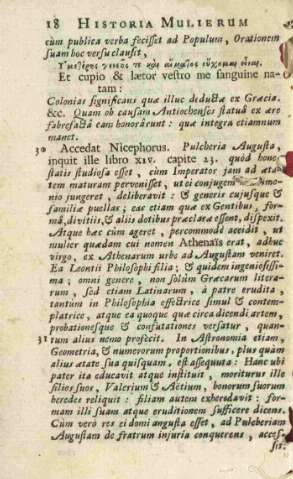 18 HISTORIA MULIERUM
cùm publica verba fecisset ad Populum, Orationem
suam hoc versu clausit,
Ὑμετέρης γενεῆς τε καὶ αἵματος εὔχομαι εἶναι.
Et cupio & lætor vestro me sanguine na-
tam:
Colonias significans quæ illuc deductæ ex Græcia.
&c. Quam ob causam Antiochenses statuâ ex ære
fabrefactâ eam honorârunt: quæ integra etiamnum
manet.
30 Accedat Nicephorus. Pulcheria Augusta,
inquit ille libro XIV. capite 23. quòd hone-
statis studiosa esset, cùm Imperator jam ad æta-
tem maturam pervenisset, ut ei conjugem
nio jungeret, deliberavit: & generis cujusque &
familiæ puellas; eas etiam quæ ex Gentibus, for-
mâ, divitiis, & aliis dotibus præclaræ essent, dispexit.
Atque hæc cùm ageret, percommodè accidit, ut
mulier quædam cui nomen Athenaïs erat, adhuc
virgo, ex Athenarum urbe ad Augustam veniret.
Ea Leontii Philosophi filia; & quidem ingeniosissi-
ma; omni genere, non solùm Græcarum litera-
rum, sed etiam Latinarum, à patre erudita:
tantùm in Philosophia effectrice simul & contem-
platrice, atque ea quoque quæ circa dicendi artem,
probationesque & confutationes versatur, quan-
rum alius nemo profecit. In Astronomia etiam,
31 Geometria, & numerorum proportionibus, plus quàm
alius ætate sua quisquam, est assequuta: Hanc ubi
pater ita educavit atque instituit, moriturus ille
filios suos, Valerium & Aëtium, bonorum suorum
heredes reliquit: filiam autem exheredavit: for-
mam illi suam atque eruditionem sufficere dicens.
Cùm verò res ei domi angusta esset, ad Pulcheriam
Augustam de fratrum injuria conquerens, acces-
sit.